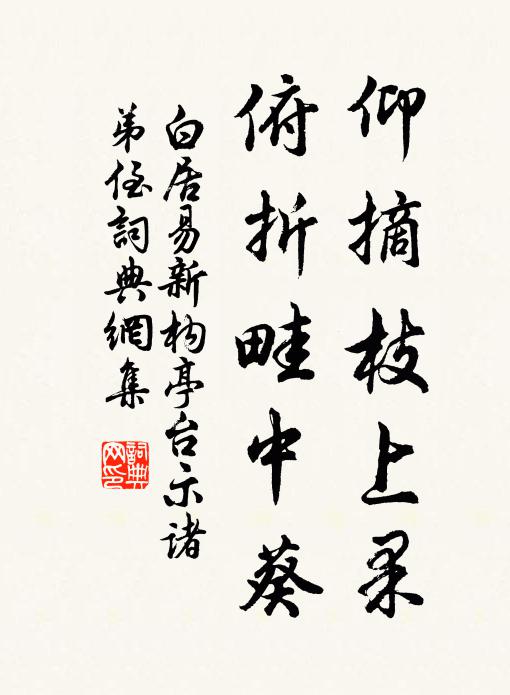 仰摘枝上果
俯折畦中葵
白居易新构亭台示諸
弟侄詞典網集
詞典
网印